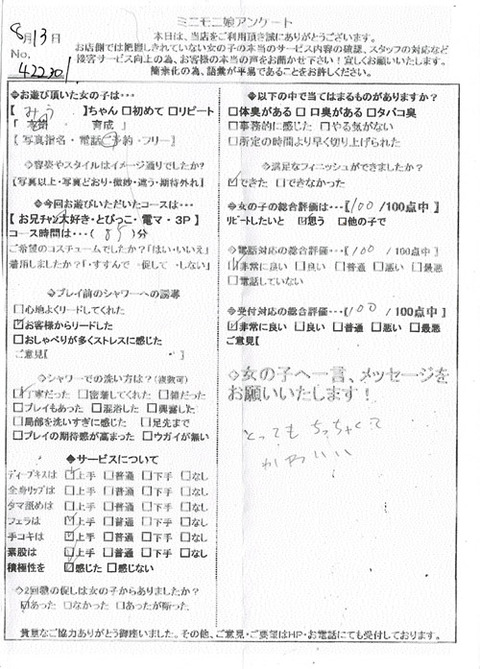 ミニモニ娘アンケート
8月13日
本日は、当店をご利用頂き誠にありがとうございます。
お店側では把握しきれていない女の子の本当のサービス内容の確認、スタッフの対応など
接客サービス向上の為、お客様の本当の声をお聞かせ下さい！宜しくお願いいたします。
簡素化の為、語彙が平易であることをお許しください。
No. 42230.1
◆お遊び頂いた女の子は…
】ちゃん □初めて □リピート
「 育成 」
【写真指名・電話予約・フリー】
◇容姿やスタイルはイメージ通りでしたか?
【写真以上・写真どおり・微妙・違う・期待外れ】
◆今回お遊びいただいたコースは…
【お兄チャン大好き・とびっこ・電マ・3P】
コース時間は…( 85 )分
ご希望のコスチュームでしたか?「はい・いいえ」
着頂しましたか?・すすんで ・促して ・しない」
◇プレイ前のシャワーへの誘導
□心地よくリードしてくれた
☑お客様からリードした
□おしゃべりが多くストレスに感じた
ご意見【 】
◇シャワーでの洗い方は？(複数可)
☑丁寧だった □密着してくれた □雑だった
□プレイもあった □混浴した □興奮した
□局部を洗いすぎに感じた □足先まで
□プレイの期待感が高まった □ウガイが無い
◆サービスについて
ディープキスは ☑上手 □普通 □下手 □なし
全身リップは □上手 □普通 □下手 □なし
タマ舐めは □上手 □普通 □下手 □なし
フェラは ☑上手 □普通 □下手 □なし
手コキは ☑上手 □普通 □下手 □なし
素股は □上手 □普通 □下手 □なし
積極性を ☑感じた □感じない
◇2回戦の促しは女の子からありましたか？
☑あった □なかった □あったが断った
◆以下の中で当てはまるものがありますか？
□体臭がある □口臭がある □タバコ臭
□事務的に感じた □やる気がない
□所定の時間より早く切り上げられた
◇満足なフィニッシュができましたか？
☑できた □できなかった
◆女の子の総合評価は…〔100/100点中〕
リピートしたいと ☑思う □他の子で
◇電話対応の総合評価…〔100/100点中〕
☑非常に良い □良い □普通 □悪い □最悪
□電話していない
◆受付対応の総合評価…〔100/100点中〕
☑非常に良い □良い □普通 □悪い □最悪
ご意見〔
◇女の子へ一言、メッセージを
お願いいたします！
とっても ちっちゃくて
かわいい
貴重なご協力ありがとう御座いました。その他、ご意見・ご要望はHP・お電話にても受付しております。